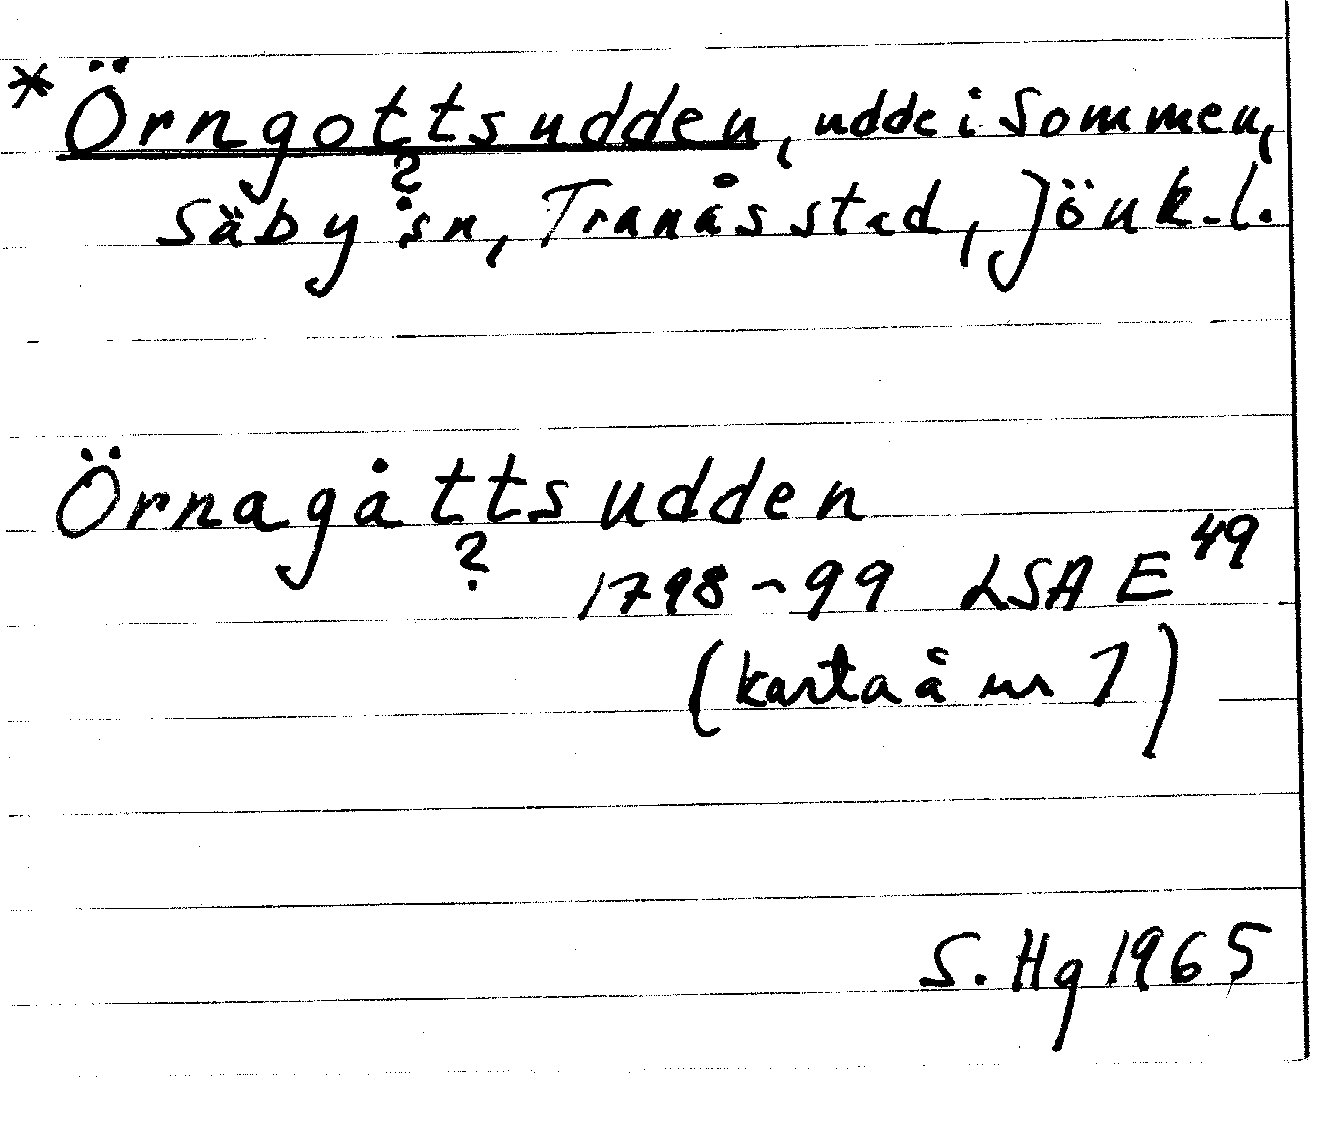 * Örngottsudden, udde i Sommen,
Säby sn, Tranås stad, Jönk.l.
Örnagåttsudden
?
1798-99 LSA E 49
(karta å nr 7)
S. Hg 1965